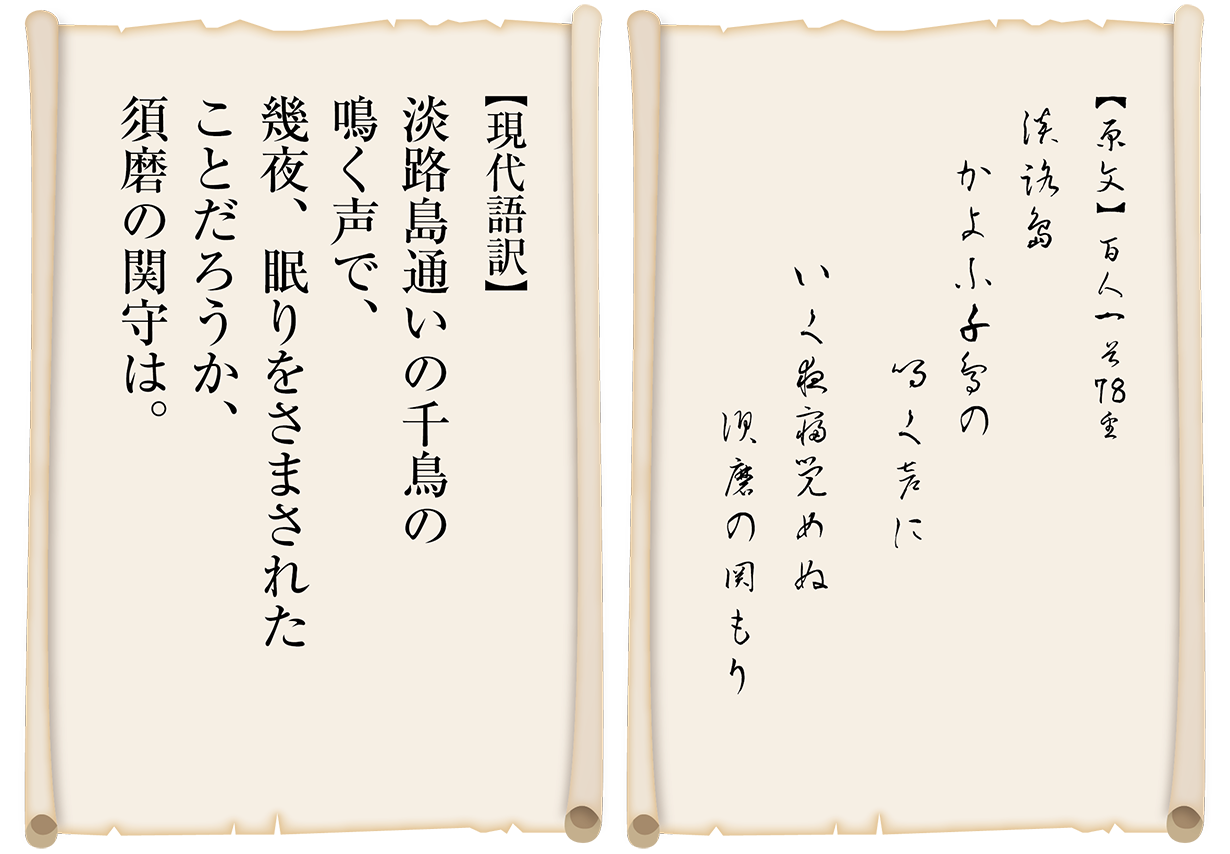 【原文】百人一首78番
淡路島
かよふ千鳥の
鳴く声に
いく夜寝覚めぬ
須磨の関もり
【現代語訳】
淡路島通いの千鳥の
鳴く声で、
幾夜、眠りをさまされた
ことだろうか、
須磨の関守は。